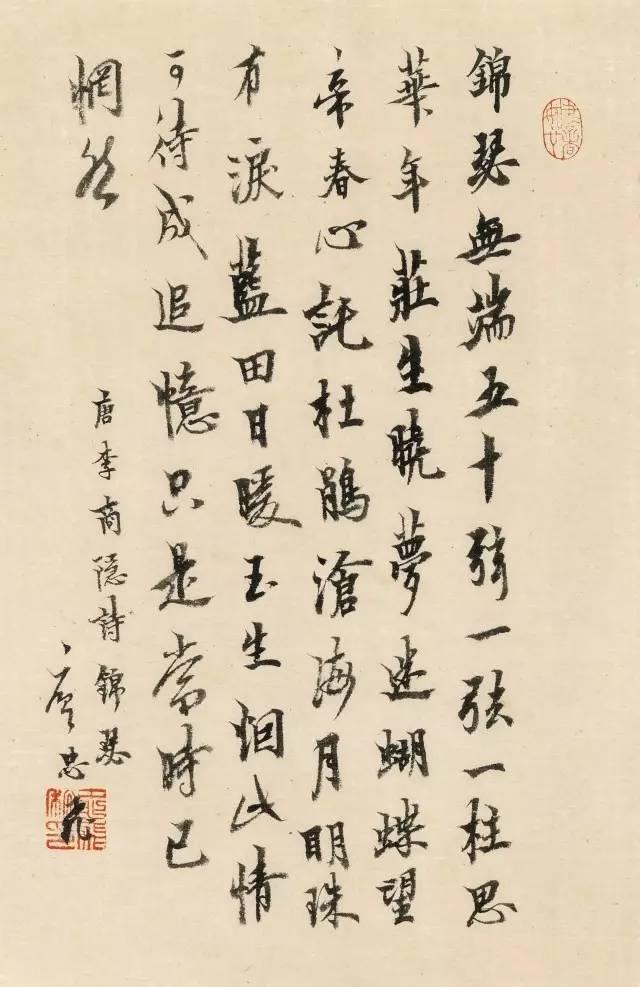 錦瑟無端五十弦一弦一柱思
華年莊生曉夢迷蝴蝶望
帝春心託杜鵑滄海月明珠
有淚藍田日暖玉生烟此情
可待成追憶只是當時已
惘然
唐李商隱詩錦瑟
忠